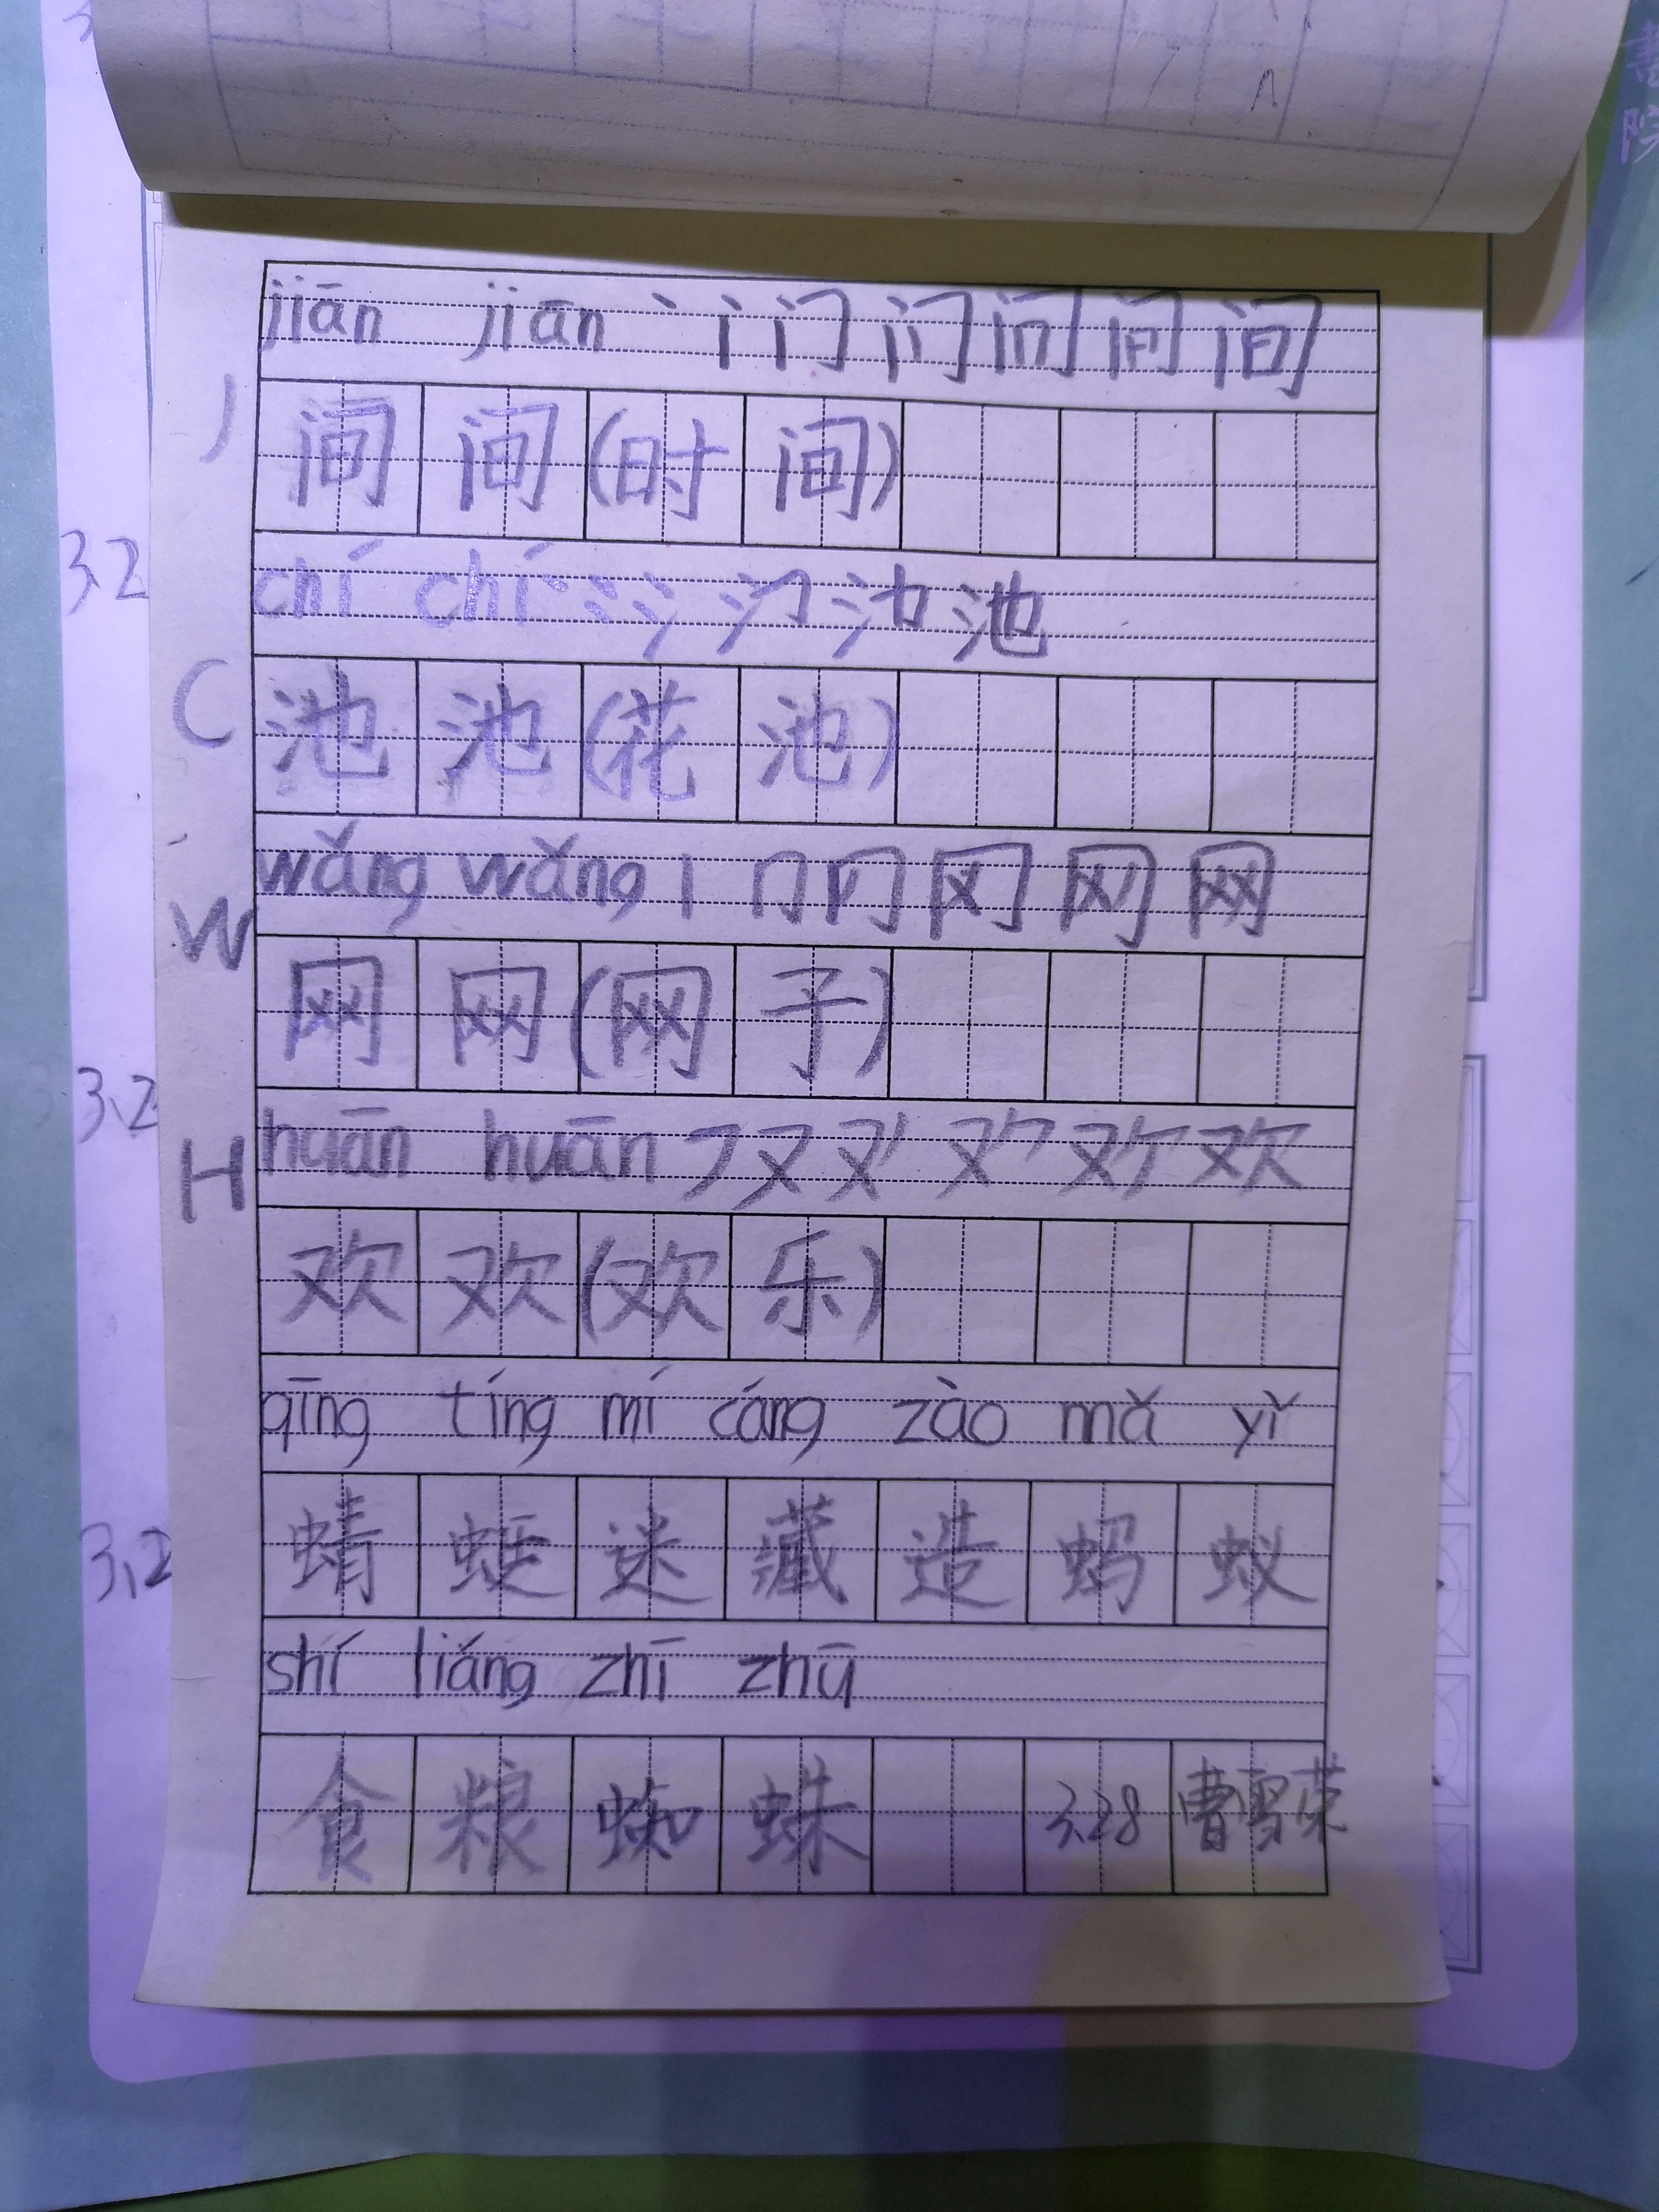 jiān jiān 丶 门 门 问 间 间
J
间 间 (时 间)
3.2
chí chí 丶 冫 氵 池
C
池 池 (花 池)
wǎng wǎng 丨 冂 冈 网
W
网 网 (网 子)
3.2
huān huān フ 又 欢
H
欢 欢 (欢 乐)
qīng tíng mí cáng zào mǎ yǐ
蜻 蜓 迷 藏 造 蚂 蚁
3.2
shí liáng zhī zhū
食 粮 蜘 蛛 3.28 曹雪荣